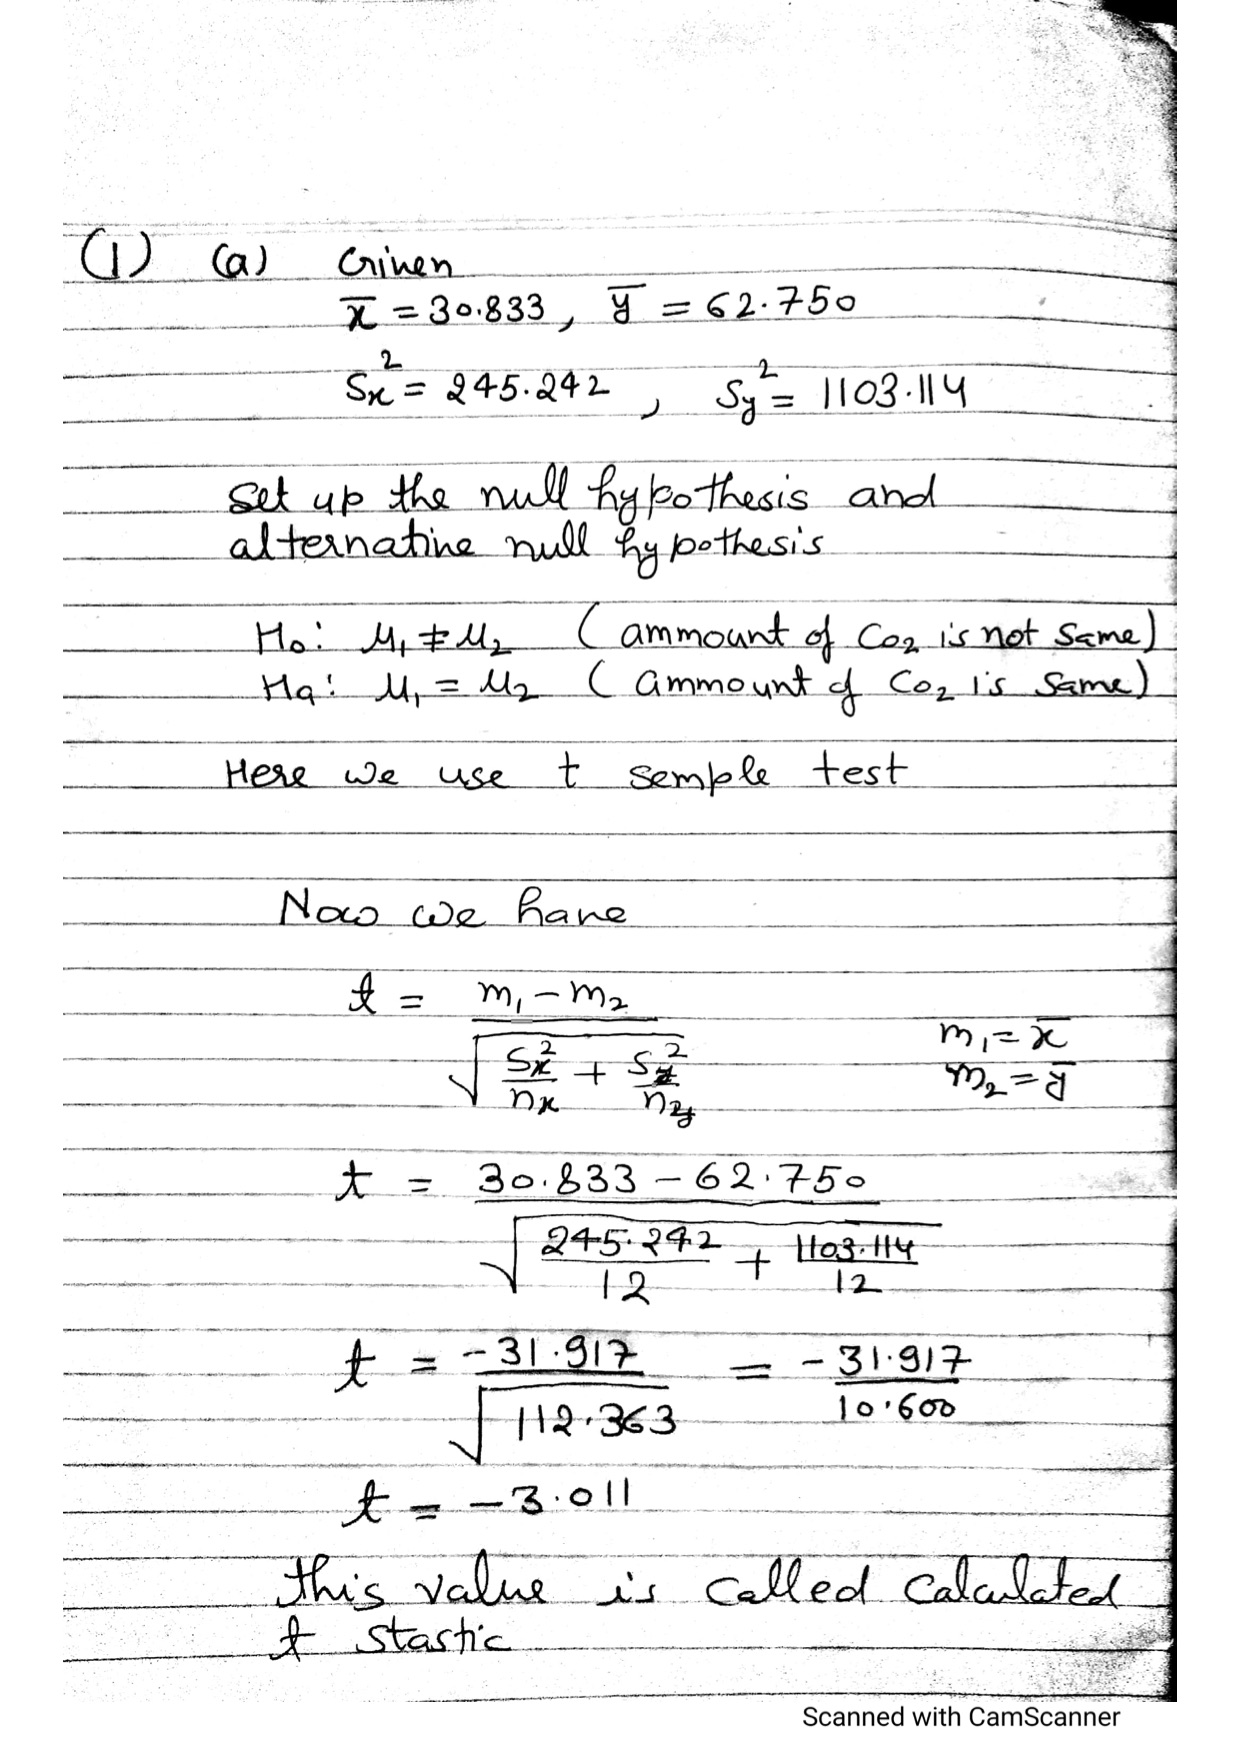 (1) (a) Given
x̄ = 30.833, ȳ = 62.750
Sx² = 245.242 , Sy² = 1103.114
Set up the null hypothesis and
alternative null hypothesis
H₀: μ₁ ≠ μ₂ (ammount of CO₂ is not same)
Ha: μ₁ = μ₂ (ammount of CO₂ is same)
Here we use t semple test
Now we have
t = (m₁ - m₂) / √(Sx²/nx + Sy²/ny)
m₁ = x̄
m₂ = ȳ
t = (30.833 - 62.750) / √(245.242/12 + 1103.114/12)
t = -31.917 / √112.363 = -31.917 / 10.600
t = -3.011
this value is called calculated
t stastic
Scanned with CamScanner